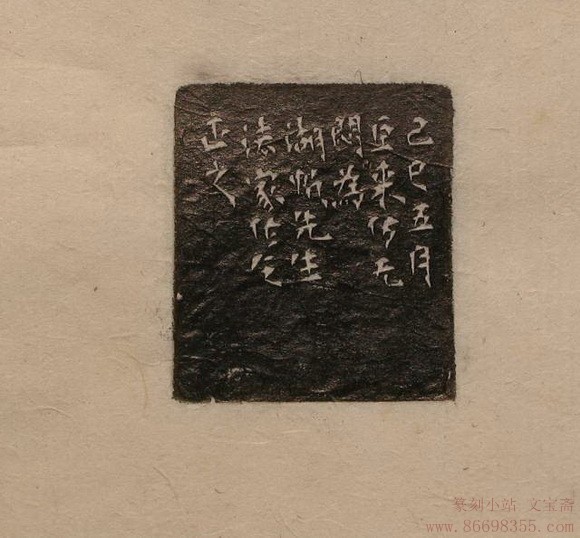 己巳五月
巨来仿无
悶為
湖帆先生
法家作乞
正之
篆刻小站 文宝斋
www.86698355.com